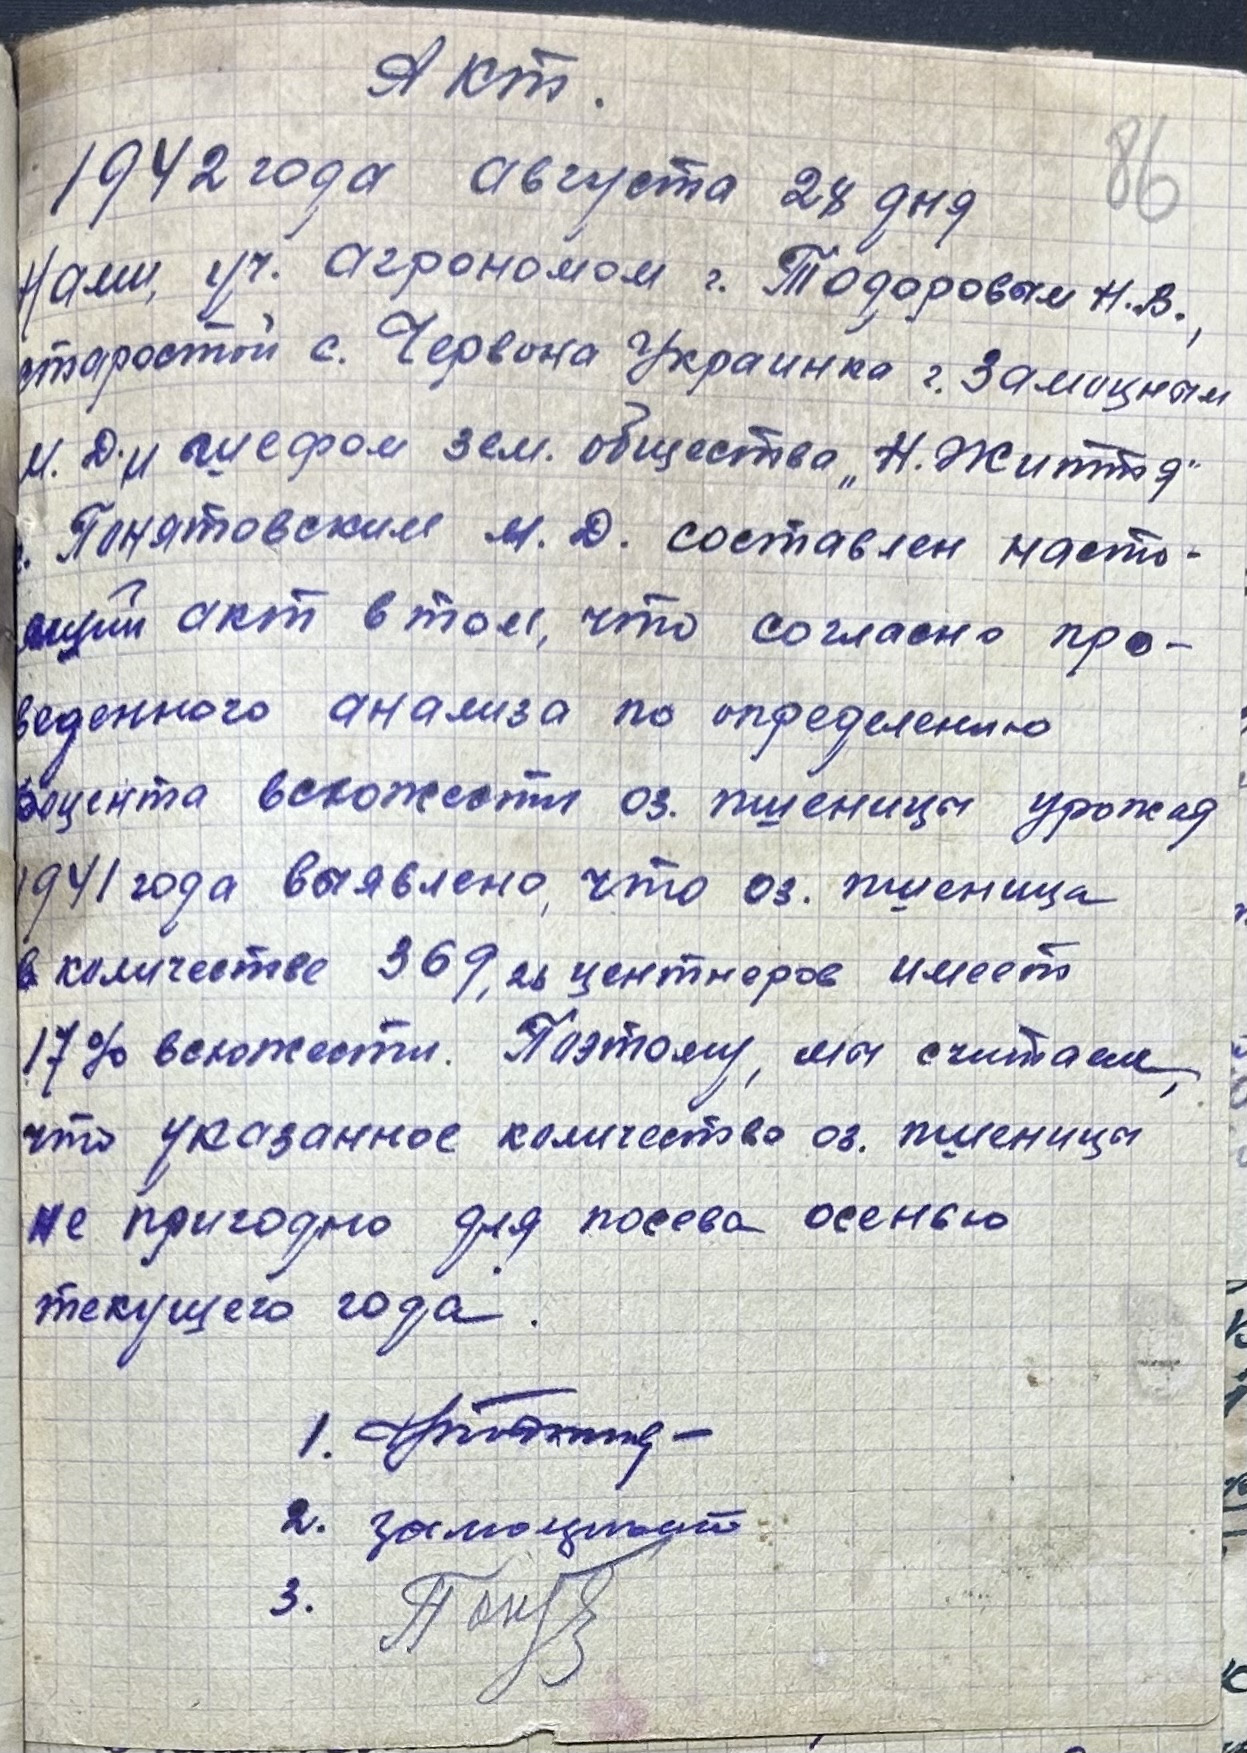 Акт.
86
1942 года августа 28 дня
Нами, уч. агрономом г. Тодоровым Н.В.,
старостой с. Червона Украинка г. Замоцным
М. Д. и шефом зем. общества „Н. Життя"
г. Понятовским М. Д. составлен насто-
ящий акт в том, что согласно про-
веденного анализа по определению
процента всхожести оз. пшеницы урожая
1941 года выявлено, что оз. пшеница
в количестве 369,28 центнеров имеет
17% всхожести. Поэтому, мы считаем,
что указанное количество оз. пшеницы
не пригодно для посева осенью
текущего года.
1.
2.
3.